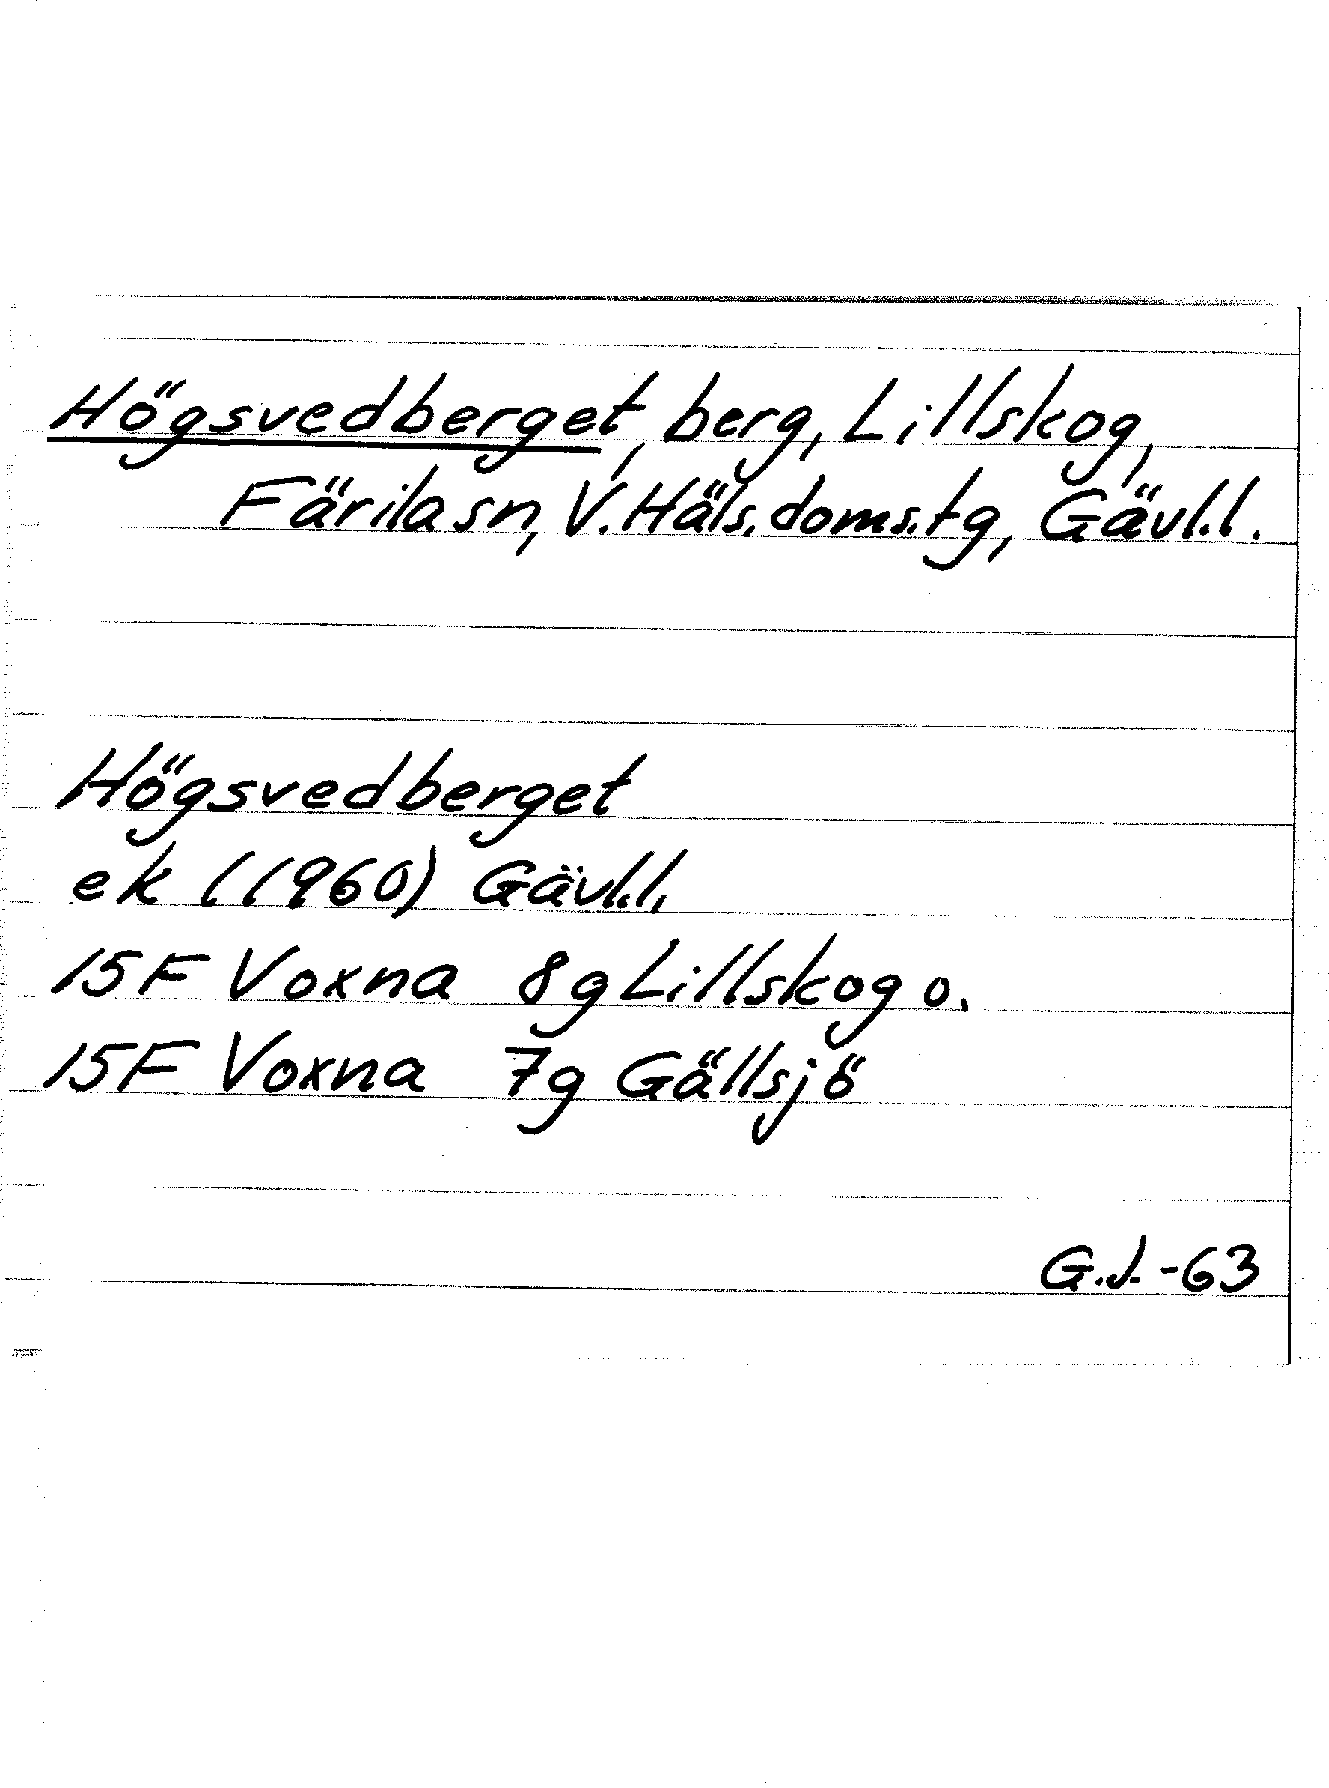 Högsvedberget, berg, Lillskog,
Färila sn, V. Häls. doms. tg, Gävl. l.
Högsvedberget
ek (1960) Gävl. l.
15F Voxna 8g Lillskog o.
15F Voxna 7g Gällsjö
G.J. -63